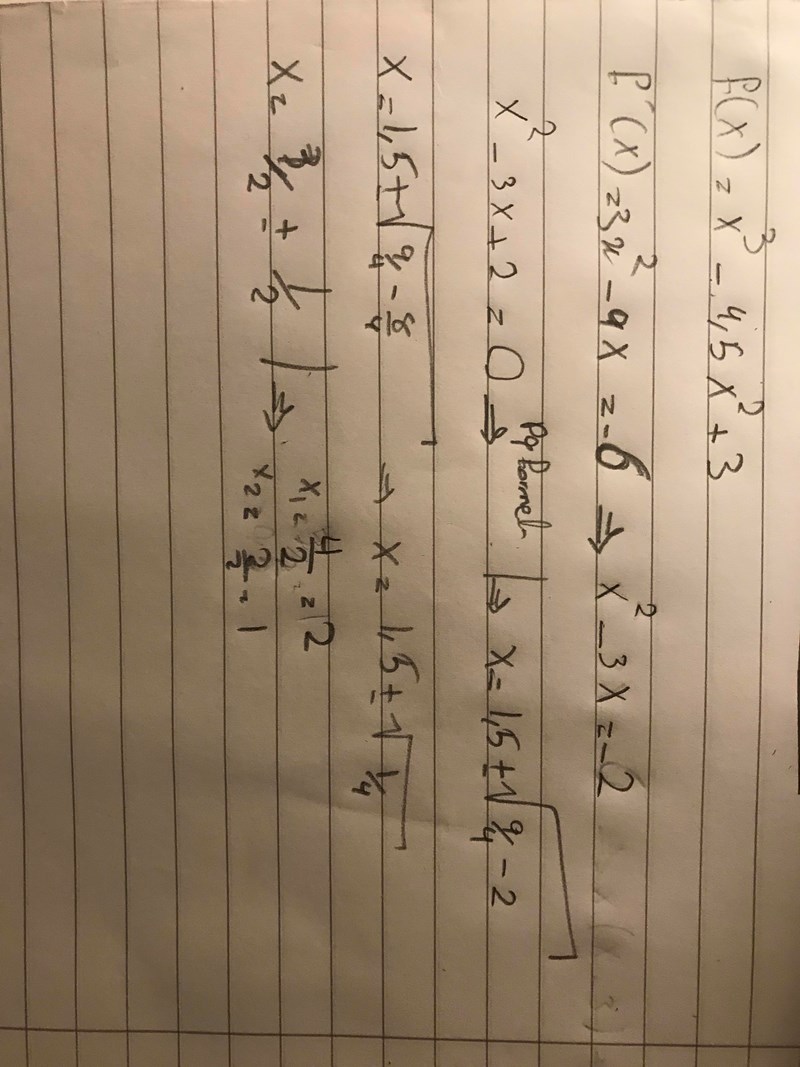 f(x) = x³ - 4,5x² + 3
f'(x) = 3x² - 9x = -6 ⇒ x² - 3x = -2
x² - 3x + 2 = 0 ⇒ pq formel ⇒ x = 1,5 ± √(9/4 - 2)
x = 1,5 ± √(9/4 - 8/4) ⇒ x = 1,5 ± √(1/4)
x = 3/2 ± 1/2 | ⇒ x₁ = 4/2 = 2
x₂ = 2/2 = 1